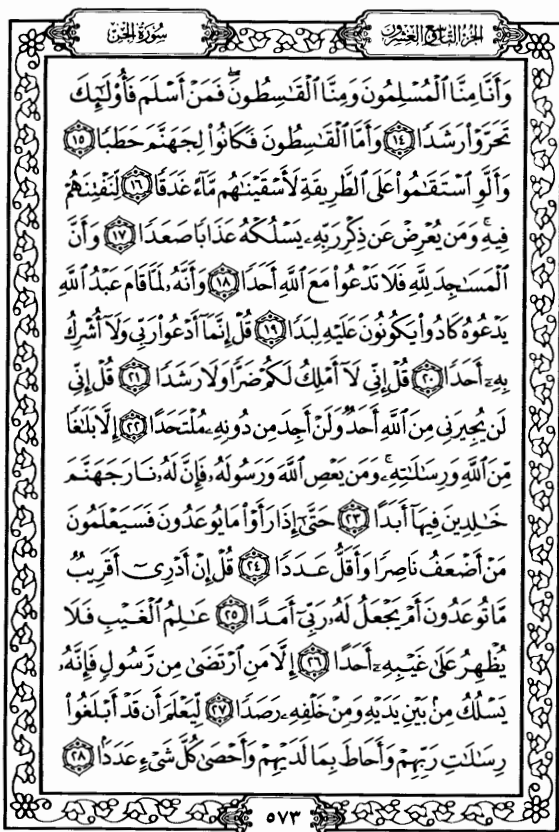 الجزء التاسع والعشرون
سورة الجن
وَأَنَّا مِنَّا ٱلْمُسْلِمُونَ وَمِنَّا ٱلْقَٰسِطُونَۖ فَمَنْ أَسْلَمَ فَأُو۟لَٰٓئِكَ
تَحَرَّوْا۟ رَشَدًا ١٤ وَأَمَّا ٱلْقَٰسِطُونَ فَكَانُوا۟ لِجَهَنَّمَ حَطَبًا ١٥
وَأَلَّوِ ٱسْتَقَٰمُوا۟ عَلَى ٱلطَّرِيقَةِ لَأَسْقَيْنَٰهُم مَّآءً غَدَقًا ١٦ لِّنَفْتِنَهُمْ
فِيهِۚ وَمَن يُعْرِضْ عَن ذِكْرِ رَبِّهِۦ يَسْلُكْهُ عَذَابًا صَعَدًا ١٧ وَأَنَّ
ٱلْمَسَٰجِدَ لِلَّهِ فَلَا تَدْعُوا۟ مَعَ ٱللَّهِ أَحَدًا ١٨ وَأَنَّهُۥ لَمَّا قَامَ عَبْدُ ٱللَّهِ
يَدْعُوهُ كَادُوا۟ يَكُونُونَ عَلَيْهِ لِبَدًا ١٩ قُلْ إِنَّمَآ أَدْعُوا۟ رَبِّى وَلَآ أُشْرِكُ
بِهِۦٓ أَحَدًا ٢٠ قُلْ إِنِّى لَآ أَمْلِكُ لَكُمْ ضَرًّا وَلَا رَشَدًا ٢١ قُلْ إِنِّى
لَن يُجِيرَنِى مِنَ ٱللَّهِ أَحَدٌ وَلَنْ أَجِدَ مِن دُونِهِۦ مُلْتَحَدًا ٢٢ إِلَّا بَلَٰغًا
مِّنَ ٱللَّهِ وَرِسَٰلَٰتِهِۦۚ وَمَن يَعْصِ ٱللَّهَ وَرَسُولَهُۥ فَإِنَّ لَهُۥ نَارَ جَهَنَّمَ
خَٰلِدِينَ فِيهَآ أَبَدًا ٢٣ حَتَّىٰٓ إِذَا رَأَوْا۟ مَا يُوعَدُونَ فَسَيَعْلَمُونَ
مَنْ أَضْعَفُ نَاصِرًا وَأَقَلُّ عَدَدًا ٢٤ قُلْ إِنْ أَدْرِىٓ أَقَرِيبٌ
مَّا تُوعَدُونَ أَمْ يَجْعَلُ لَهُۥ رَبِّىٓ أَمَدًا ٢٥ عَٰلِمُ ٱلْغَيْبِ فَلَا
يُظْهِرُ عَلَىٰ غَيْبِهِۦٓ أَحَدًا ٢٦ إِلَّا مَنِ ٱرْتَضَىٰ مِن رَّسُولٍ فَإِنَّهُۥ
يَسْلُكُ مِنۢ بَيْنِ يَدَيْهِ وَمِنْ خَلْفِهِۦ رَصَدًا ٢٧ لِّيَعْلَمَ أَن قَدْ أَبْلَغُوا۟
رِسَٰلَٰتِ رَبِّهِمْ وَأَحَاطَ بِمَا لَدَيْهِمْ وَأَحْصَىٰ كُلَّ شَىْءٍ عَدَدًۢا ٢٨
٥٧٣